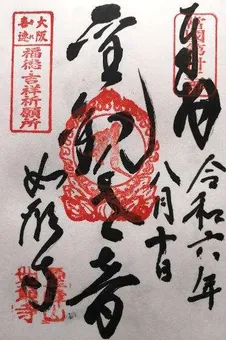 奉拝
令和六年
八月十日
聖観世音
如願寺
大阪
喜連
福徳・吉祥祈願所